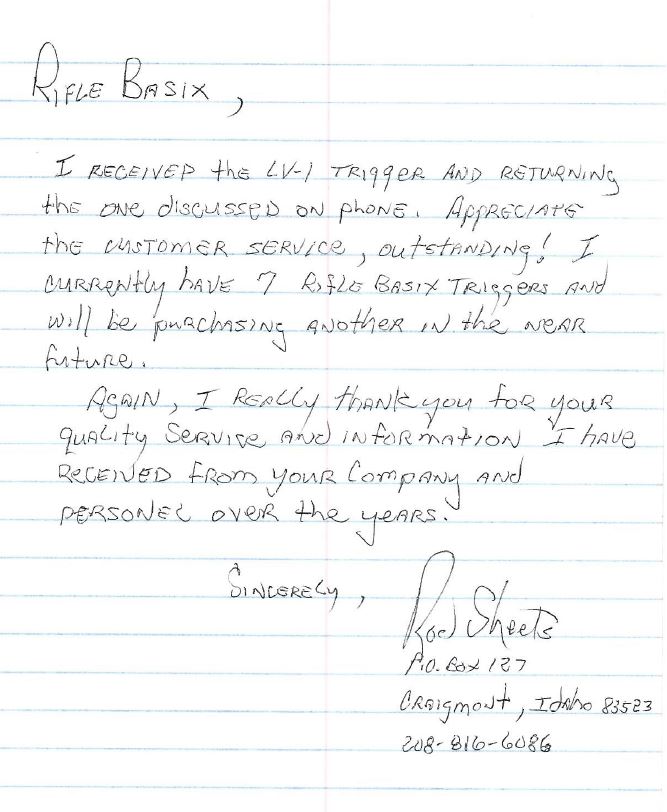 Rifle Basix,
I received the LV-1 Trigger and returning
the one discussed on phone. Appreciate
the customer service, outstanding! I
currently have 7 Rifle Basix Triggers and
will be purchasing another in the near
future.
Again, I really thank you for your
quality service and information I have
received from your company and
personel over the years.
Sincerely,
Rod Sheets
P.O. Box 127
Craigmont, Idaho 83523
208-816-6086